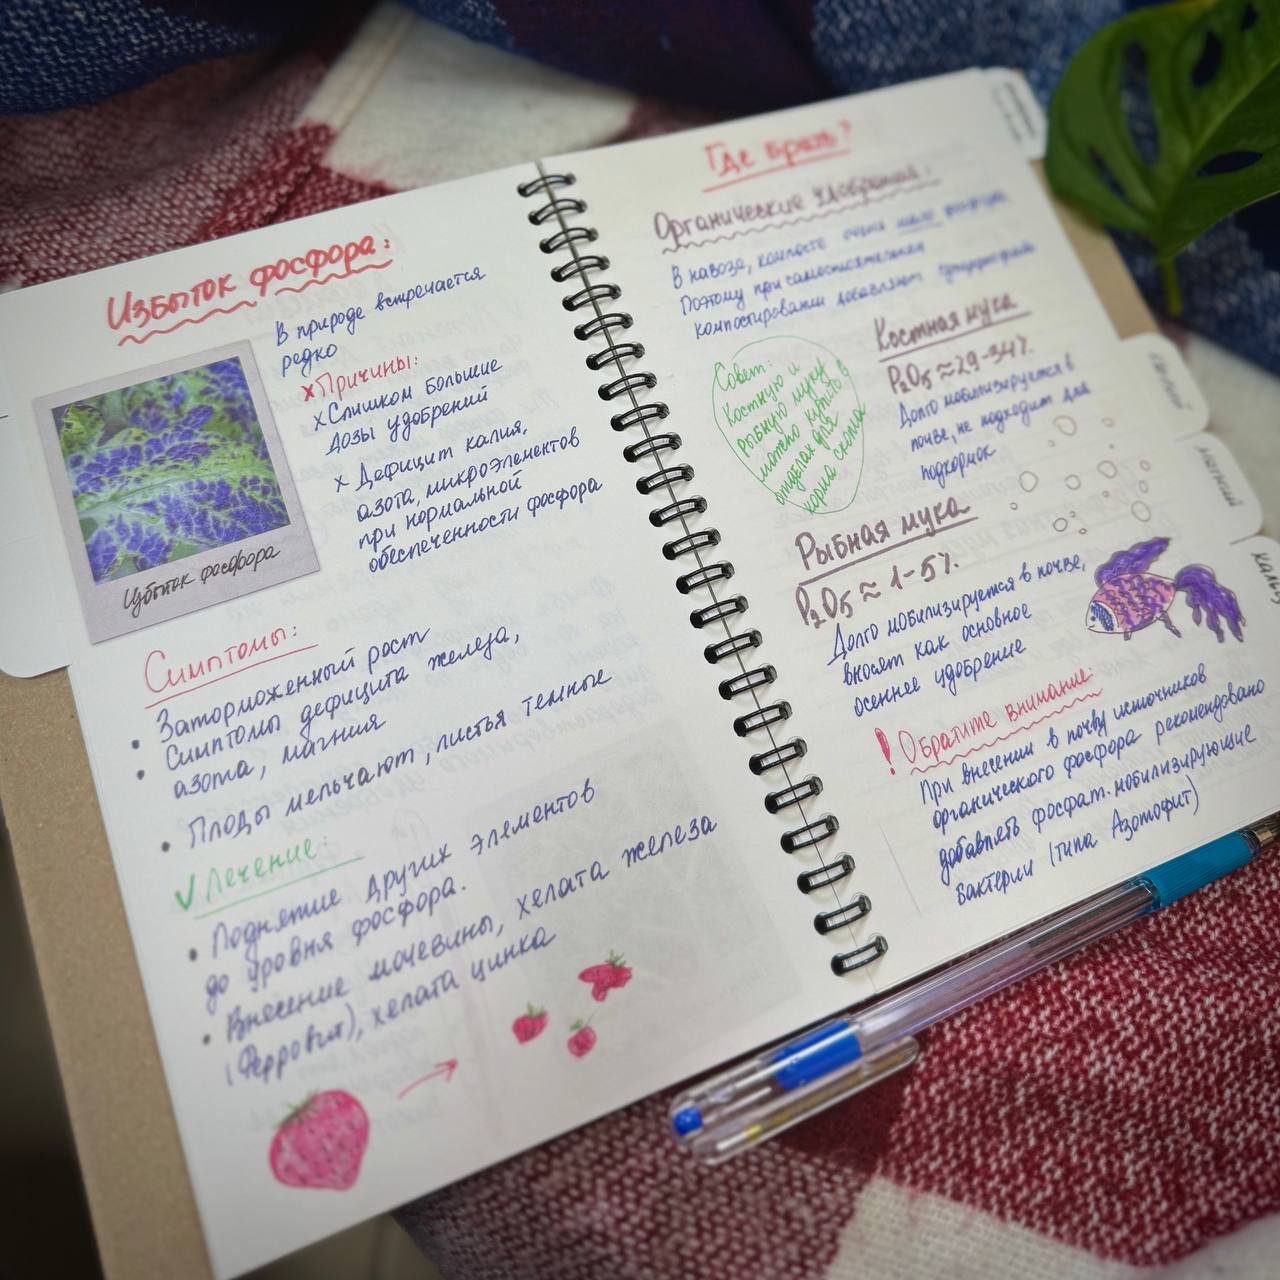 Избыток фосфора:
В природе встречается
редко
x Причины:
x Слишком большие
дозы удобрений
x Дефицит калия,
азота, микроэлементов
при нормальной
обеспеченности фосфора
Избыток фосфора
Симптомы:
• Заторможенный рост
• Симптомы дефицита железа,
азота, магния
• Плоды мельчают, листья темные
√ Лечение:
• Поднятие других элементов
до уровня фосфора.
• Внесение мочевины, хелата железа
(Ферровит), хелата цинка
Где брать?
Органические удобрения:
В навозе, компосте очень мало фосфора.
Поэтому при самостоятельном
компостировании добавляют суперфосфат
Костная мука
P₂O₅ ≈ 29-34%.
Долго мобилизируется в
почве, не подходит для
подкормок
Совет:
Костную и
рыбную муку
можно купить в
отделах для
корма скота
Рыбная мука
P₂O₅ ≈ 1-5%.
Долго мобилизируется в почве,
вносят как основное
осеннее удобрение
! Обратите внимание:
При внесении в почву источников
органического фосфора рекомендовано
добавлять фосфат.мобилизирующие
бактерии (типа Азотофит)
магний